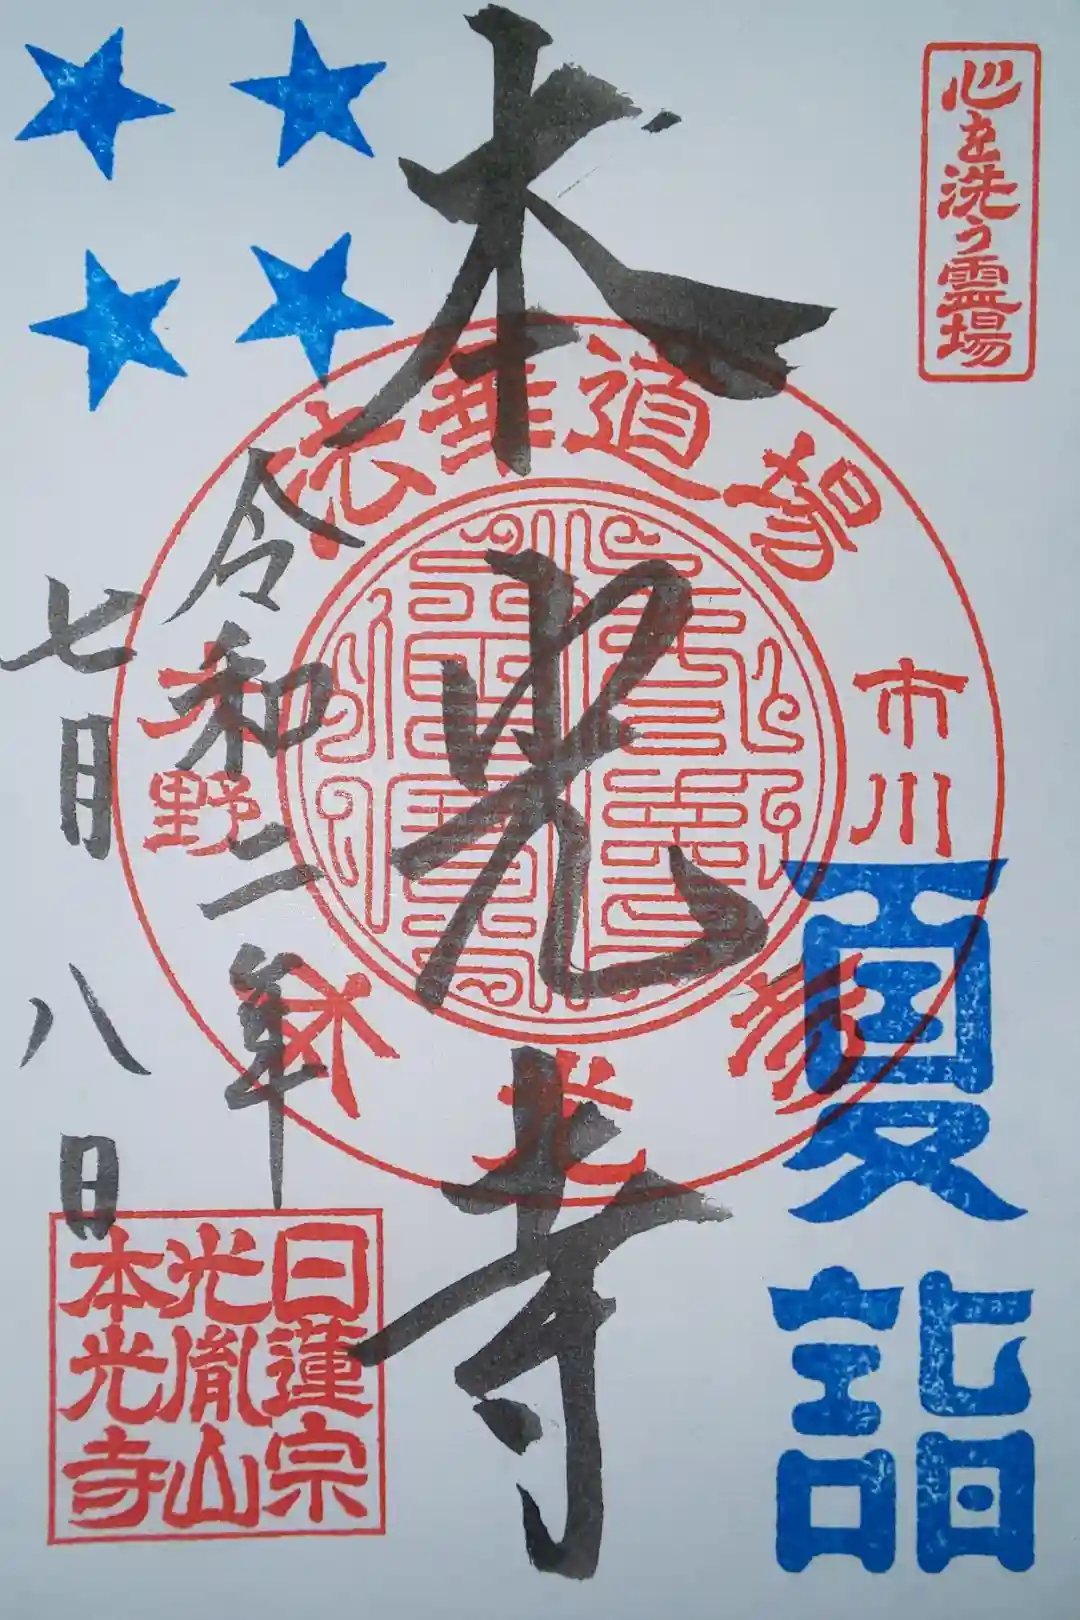 心を洗う霊場
夏詣
本光寺
法華道場
市川
大野
本光寺
令和二年
七月八日
日蓮宗
光胤山
本光寺